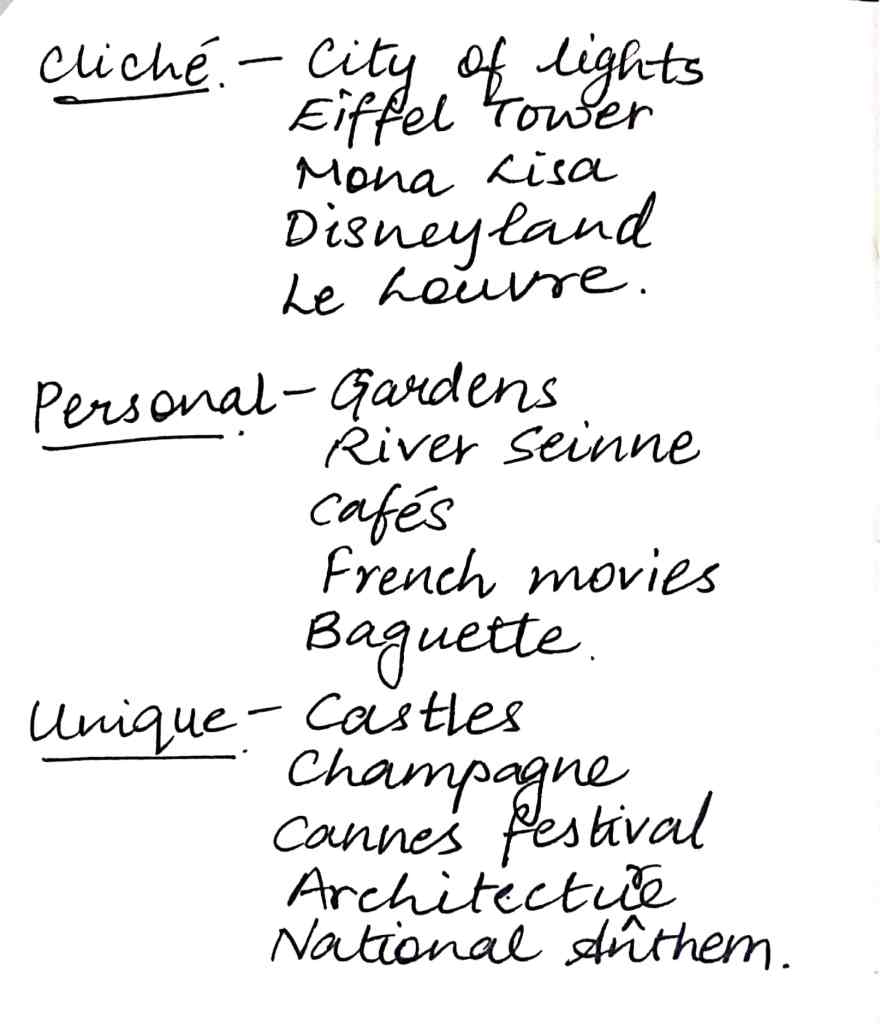 Cliché. - City of lights
Eiffel Tower
Mona Lisa
Disneyland
Le Louvre.
Personal - Gardens
River Seinne
Cafés
French movies
Baguette.
Unique - Castles
Champagne
Cannes festival
Architecture
National Anthem.